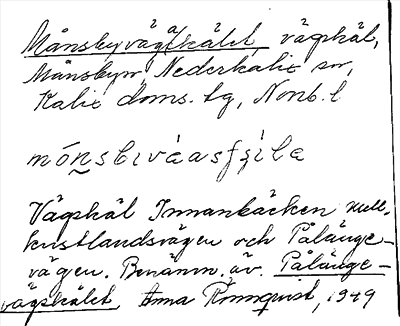 Månsbyvägskälet, vägskäl,
Månsbyn, Nederkalix sn,
Kalix doms. tg, Norrb. l
Vägskäl Innanbäcken Kull-
kustlandsvägen och Pålänge-
vägen. Benämn. äv. Pålänge-
vägskälet. Erna Rönnquist, 1949